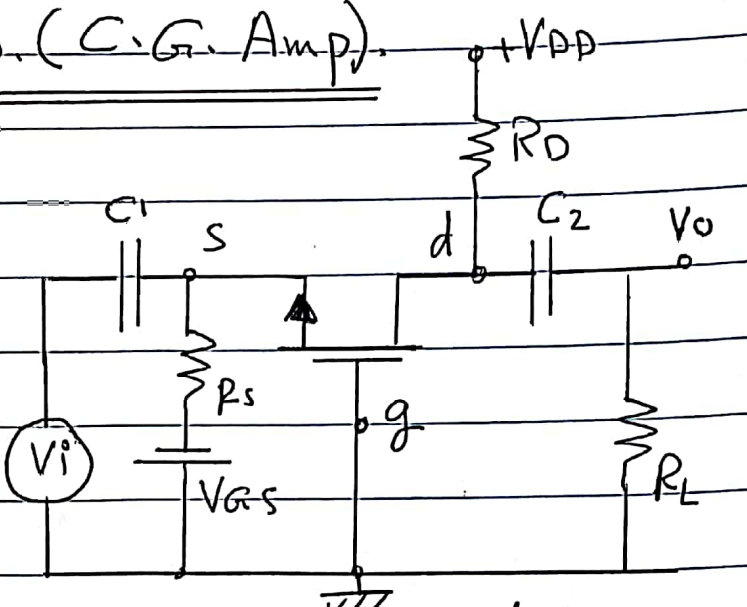 .(C.G. Amp).
+VDD
RD
C1
S
d
C2
Vo
Rs
g
Vi
VGS
RL